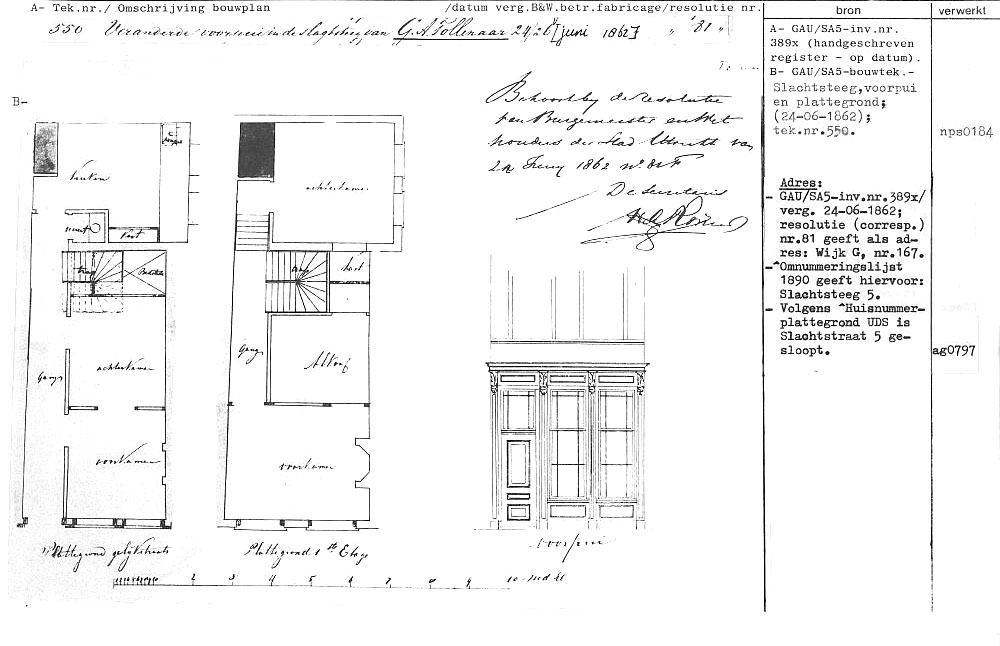 A- Tek.nr./ Omschrijving bouwplan /datum verg.B&W.betr.fabricage/resolutie nr.
550 Veranderde voorpui in de slagtsteeg van G.A. Tollenaar 24/26 [juni 1862] " 81 "
B-
Behoort by de resolutie
van Burgemeester en Wet
houders der Stad Utrecht van
24 Juny 1862 nº 81
De Secretaris
keuken
kast
trap
Gang
achterkamer
voorkamer
Plattegrond gelijkstraats
achterkamer
trap
kast
Gang
Alkoof
voorkamer
Plattegrond 1ste Etage
voorpui
2 3 4 5 6 7 8 9 10 Med El
bron
A- GAU/SA5-inv.nr.
389x (handgeschreven
register - op datum).
B- GAU/SA5-bouwtek.-
Slachtsteeg,voorpui
en plattegrond;
(24-06-1862);
tek.nr.550.
Adres:
- GAU/SA5-inv.nr.389x/
verg. 24-06-1862;
resolutie (corresp.)
nr.81 geeft als ad-
res: Wijk G, nr.167.
-^Omnummeringslijst
1890 geeft hiervoor:
Slachtsteeg 5.
- Volgens ^Huisnummer-
plattegrond UDS is
Slachtstraat 5 ge-
sloopt.
verwerkt
nps0184
ag0797